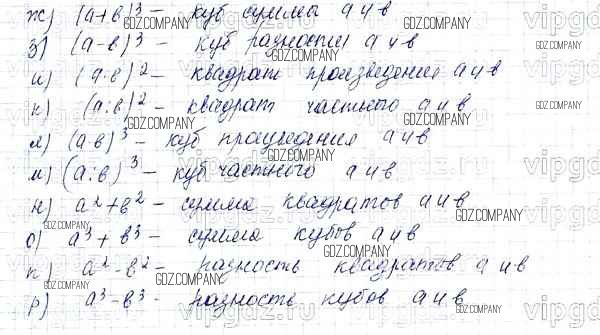 ж) (а+в)³ – куб суммы а и в
з) (а-в)³ – куб разности а и в
и) (а·в)² – квадрат произведения а и в
к) (а:в)² – квадрат частного а и в
л) (а·в)³ – куб произведения а и в
м) (а:в)³ – куб частного а и в
н) а²+в² – сумма квадратов а и в
о) а³+в³ – сумма кубов а и в
п) а²-в² – разность квадратов а и в
р) а³-в³ – разность кубов а и в
GDZ.COMPANY
vipgdz.ru